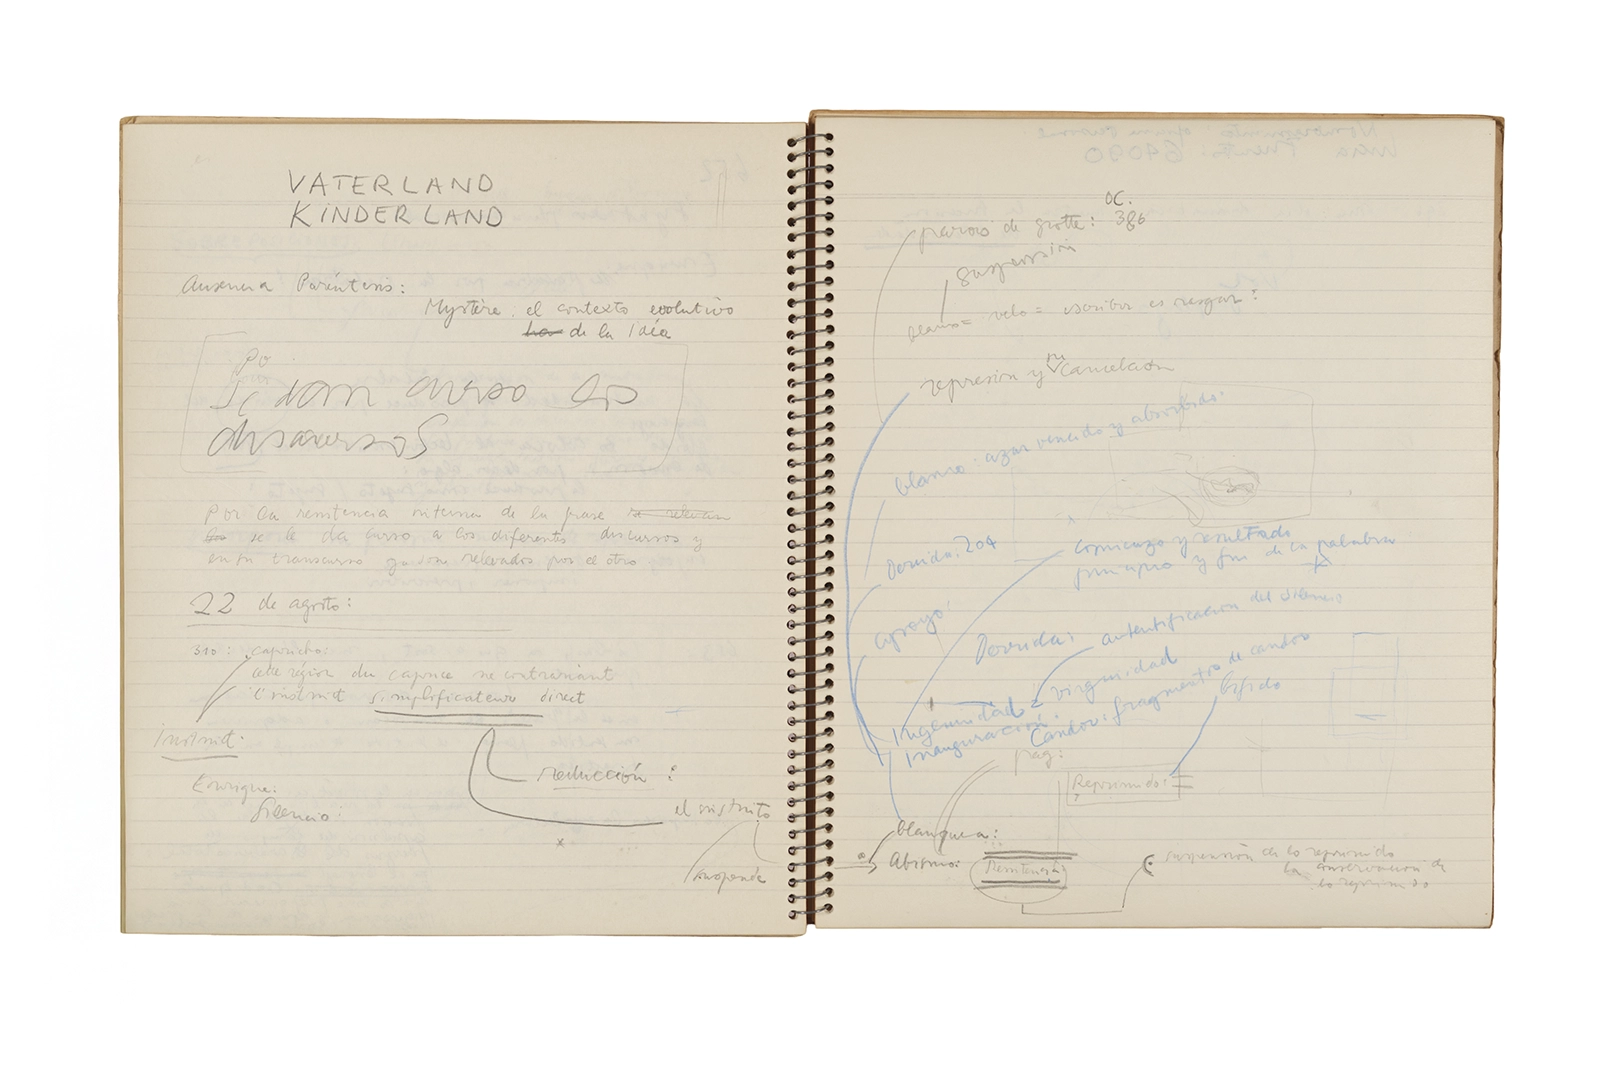 VATERLAND
KINDERLAND
Ausencia Paréntesis:
Mystère: el contexto evolutivo
de la Idéa
Se dan curso los
discursos
Por la resistencia interna de la frase se relevan
se le da curso a los diferentes discursos y
en su transcurso ya son relevados por el otro
22 de agosto:
310: capricho:
cette région du caprice se contrariant
l'instinct simplificateur direct
Instinct.
reducción:
Enrique:
Silencio:
el instinto
suspende
OC.
parois de grotte: 386
suspensión
blanco = velo = escribir es rasgar:
represión y cancelación
blanco: azar vencido y absorbido.
Derrida: 204
comienzo y resultado
principio y fin de la palabra
apoyo:
Derrida: autentificacion del silencio
Ingenuidad = virginidad
Inauguración.
Candor: fragmentos de candor
bífido
frag:
Reprimido:
blanquea:
Abismo:
Resistencia
suspensión de lo reprimido
la conservación de
lo reprimido